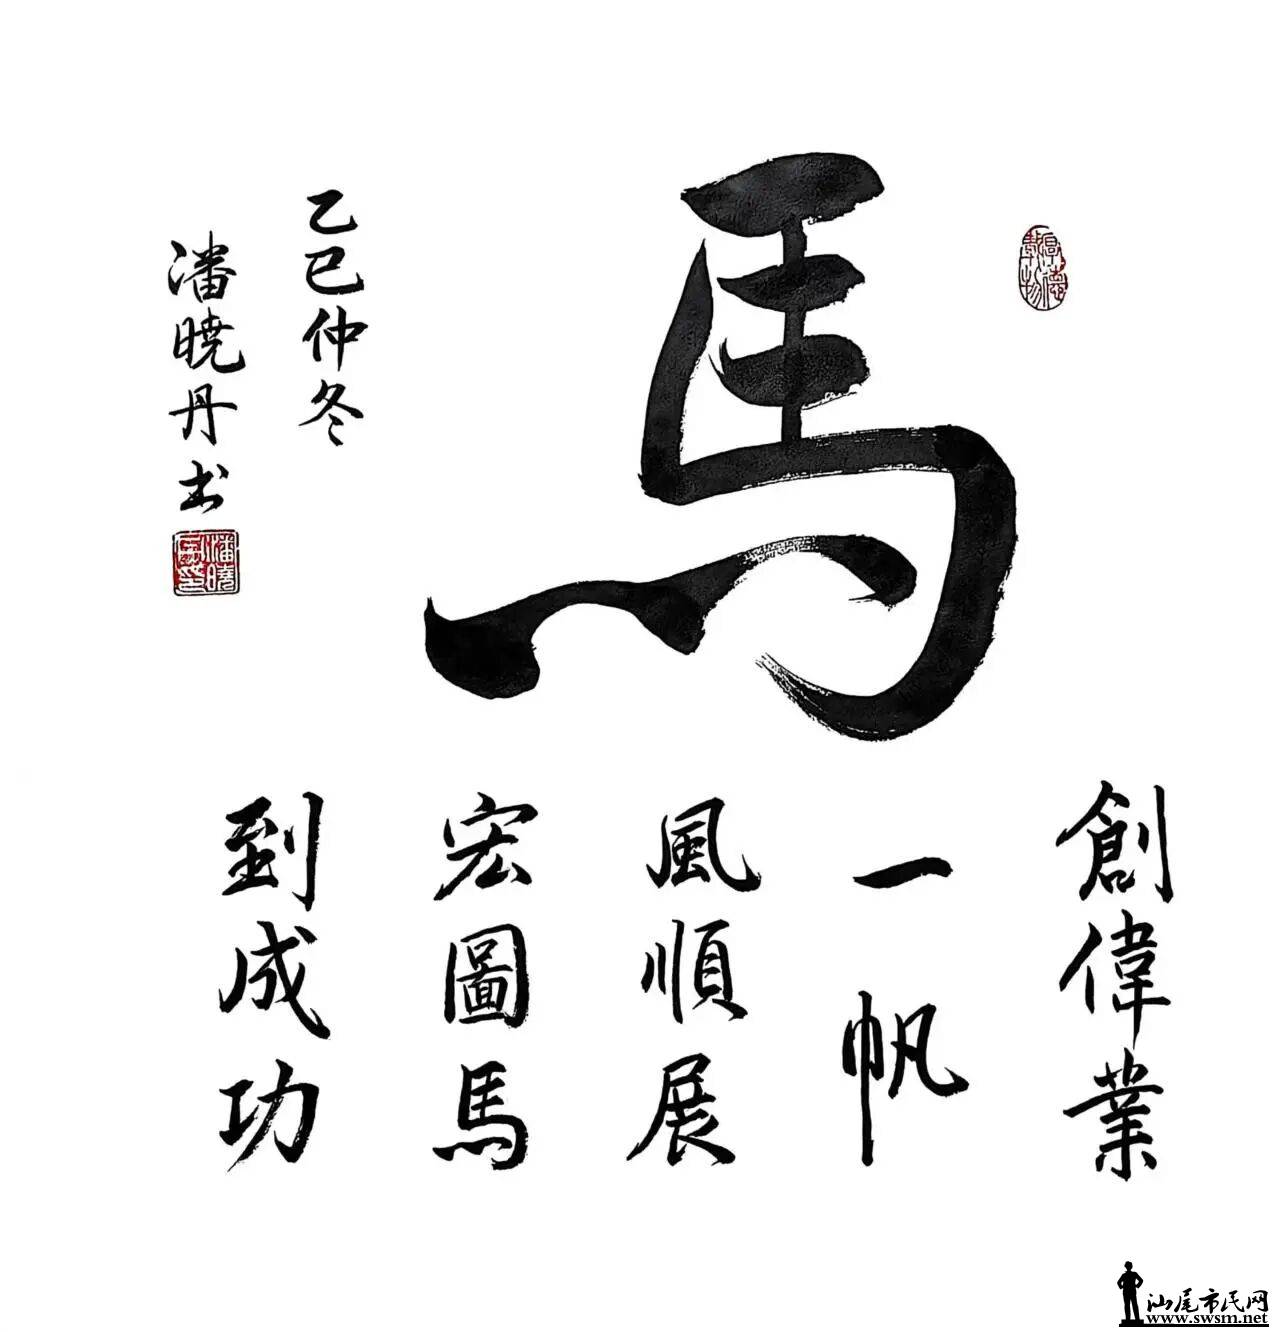 馬
創偉業
一帆
風順展
宏圖馬
到成功
乙巳仲冬
潘曉丹书
潘曉丹印
汕尾市民网
www.swsm.net